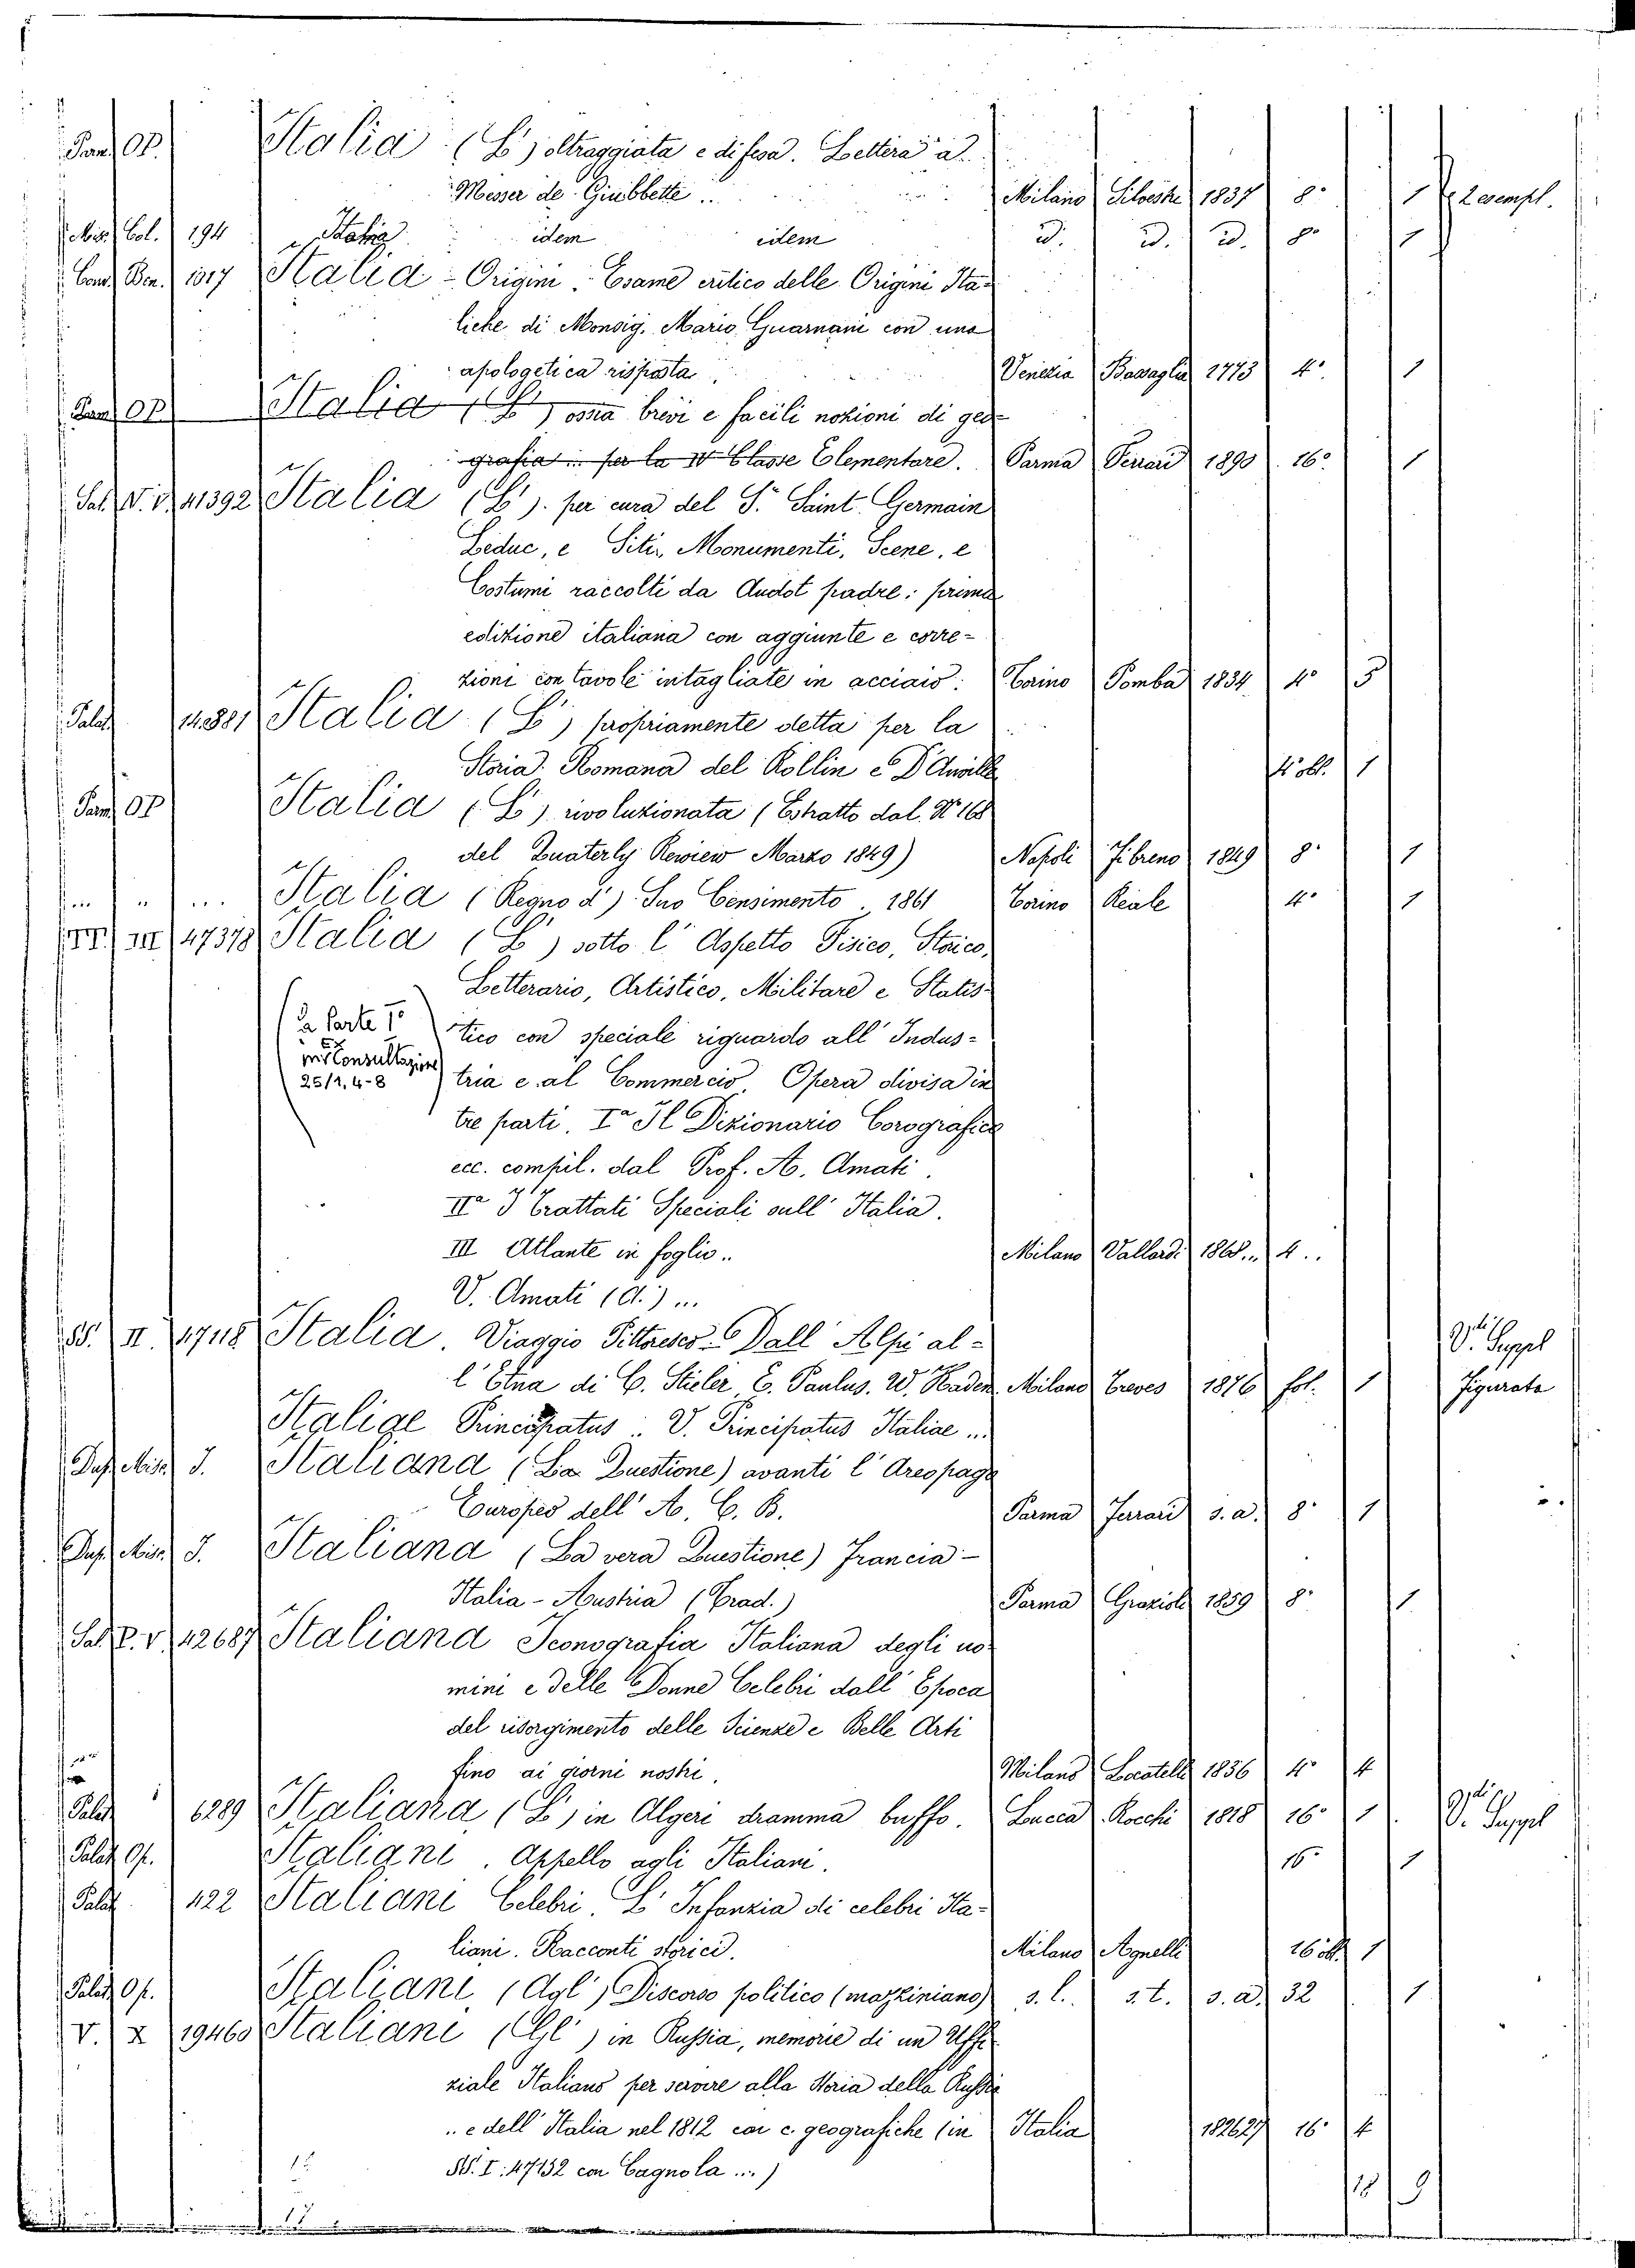 Italia (L') oltraggiata e difesa. Lettera a
Messer de Giubbette .. Milano Silvestri 1837 8° 1 2 esempl.
Misc. Col. 194 Italia idem idem id. id. id. 8° 1
Ben. 1317 Italia - Origini. Esame critico delle Origini Ita-
liche di Monsig. Mario Guarnani con una
apologetica risposta Venezia Bassaglia 1773 4°. 1
Italia (L') ossia brevi e facili nozioni di geo-
grafia .. per la IV Classe Elementare. Parma Ferrari 1890 16° 1
Sal. 41392 Italia (L'). per cura del Sr. Saint. Germain
Leduc, e Siti, Monumenti, Scene, e
Costumi raccolti da Audot padre: prima
edizione italiana con aggiunte e corre-
zioni con tavole intagliate in acciaio: Torino Pomba 1834 4° 3
Palat 14881 Italia (L') propriamente detta per la
Storia Romana del Rollin e D'Anville 1
Italia (L') rivoluzionata (Estratto dal. N° 168
del Quaterly Rewiew Marzo 1849) Napoli Fibreno 1849 8° 1
... " ... Italia (Regno d') Suo Censimento. 1861 Torino Reale 4° 1
III 47378 Italia (L') sotto l'Aspetto Fisico, Storico,
Letterario, Artistico, Militare e Statis-
(La Parte 1a tico con speciale riguardo all'Indus-
in Consultazione
25/1, 4-8 tria e al Commercio. Opera divisa in
tre parti. Ia Il Dizionario Corografico
ecc. compil. dal Prof. A. Amati.
IIa I Trattati Speciali sull'Italia.
III Atlante in foglio.. Milano Vallardi 1868... 4..
V. Amati (A.) ...
SS. II. 47118 Italia. Viaggio Pittoresco Dall'Alpi al- V. Suppl
l'Etna di C. Stieler, E. Paulus. W. Kaden. Milano Treves 1876 fol. 1 Figurata
Italiae Principatus .. V. Principatus Italiae ...
Misc. I. Italiana (La Questione) avanti l'Areopago
Europeo dell'A. C. B. Parma Ferrari s. a. 8° 1
Misc. I. Italiana (La vera Questione) Francia-
Italia-Austria (Trad.) Parma Grazioli 1859 8° 1
Sal. P. V. 42687 Italiana Iconografia Italiana degli uo-
mini e delle Donne Celebri dall'Epoca
del risorgimento delle Scienze e Belle Arti
fino ai giorni nostri. Milano Locatelli 1836 4° 4
Palat 6289 Italiana (L') in Algeri dramma buffo. Lucca Rocchi 1818 16° 1 V. Suppl
Palat Of. Italiani. Appello agli Italiani. 16° 1
Palat 422 Italiani Celebri. L'Infanzia di celebri Ita-
liani. Racconti storici. Milano Agnelli 1
Palat Of. Italiani (Agl') Discorso politico (mazziniano) s. l. s. t. s. a. 32 1
V. X 19460 Italiani (Gl') in Russia, memorie di un Uffi-
ziale Italiano per servire alla storia della Russia
.. e dell'Italia nel 1812 con c. geografiche (in Italia 182627 16° 4
SS. I. 47132 con Cagnola ...)
18 9